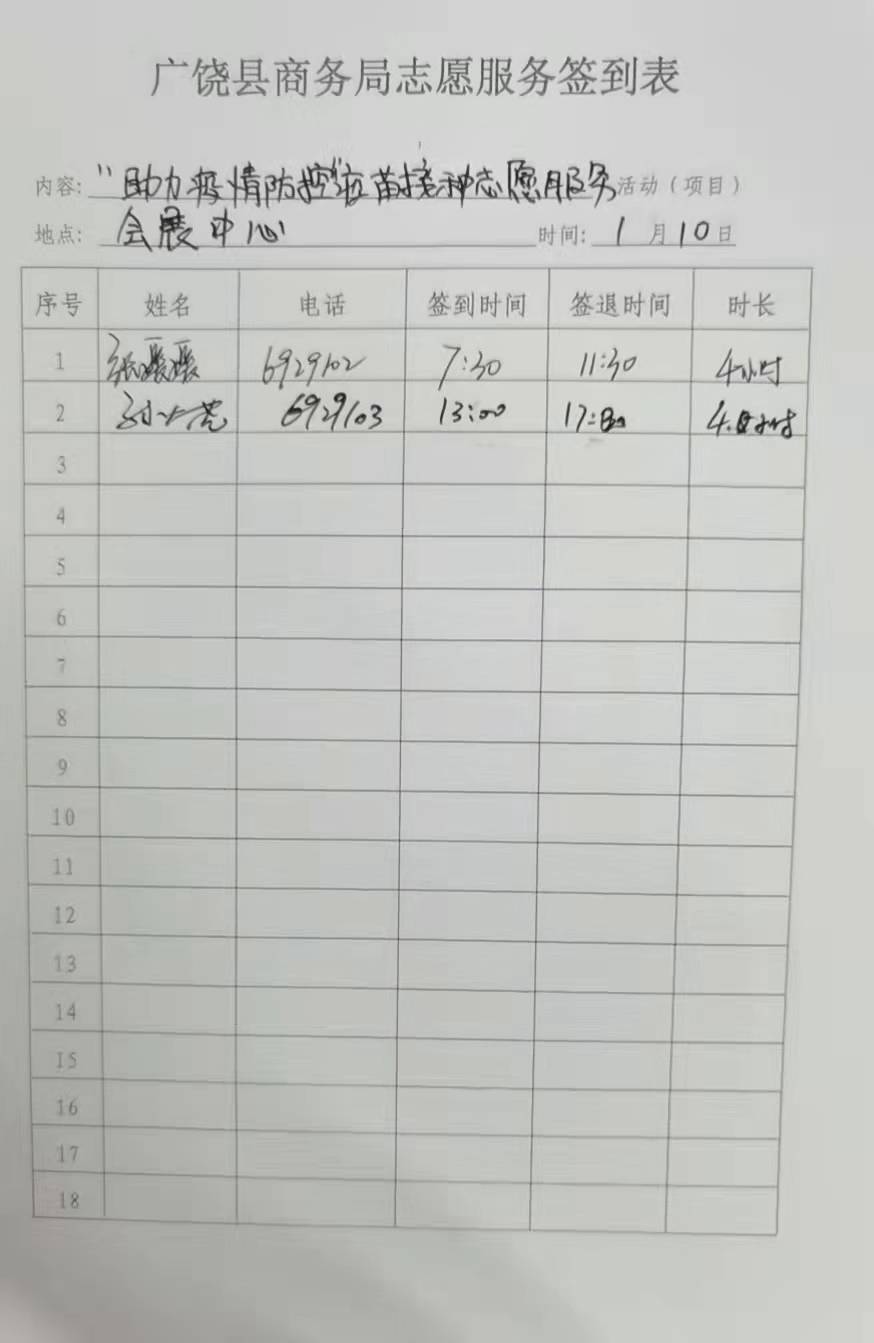 广饶县商务局志愿服务签到表
内容: "助力疫情防控"疫苗接种志愿服务活动（项目）
地点: 会展中心 时间: 1月10日
序号 姓名 电话 签到时间 签退时间 时长
1 6929102 7:30 11:30 4小时
2 6929103 13:00 17:00 4小时
3
4
5
6
7
8
9
10
11
12
13
14
15
16
17
18